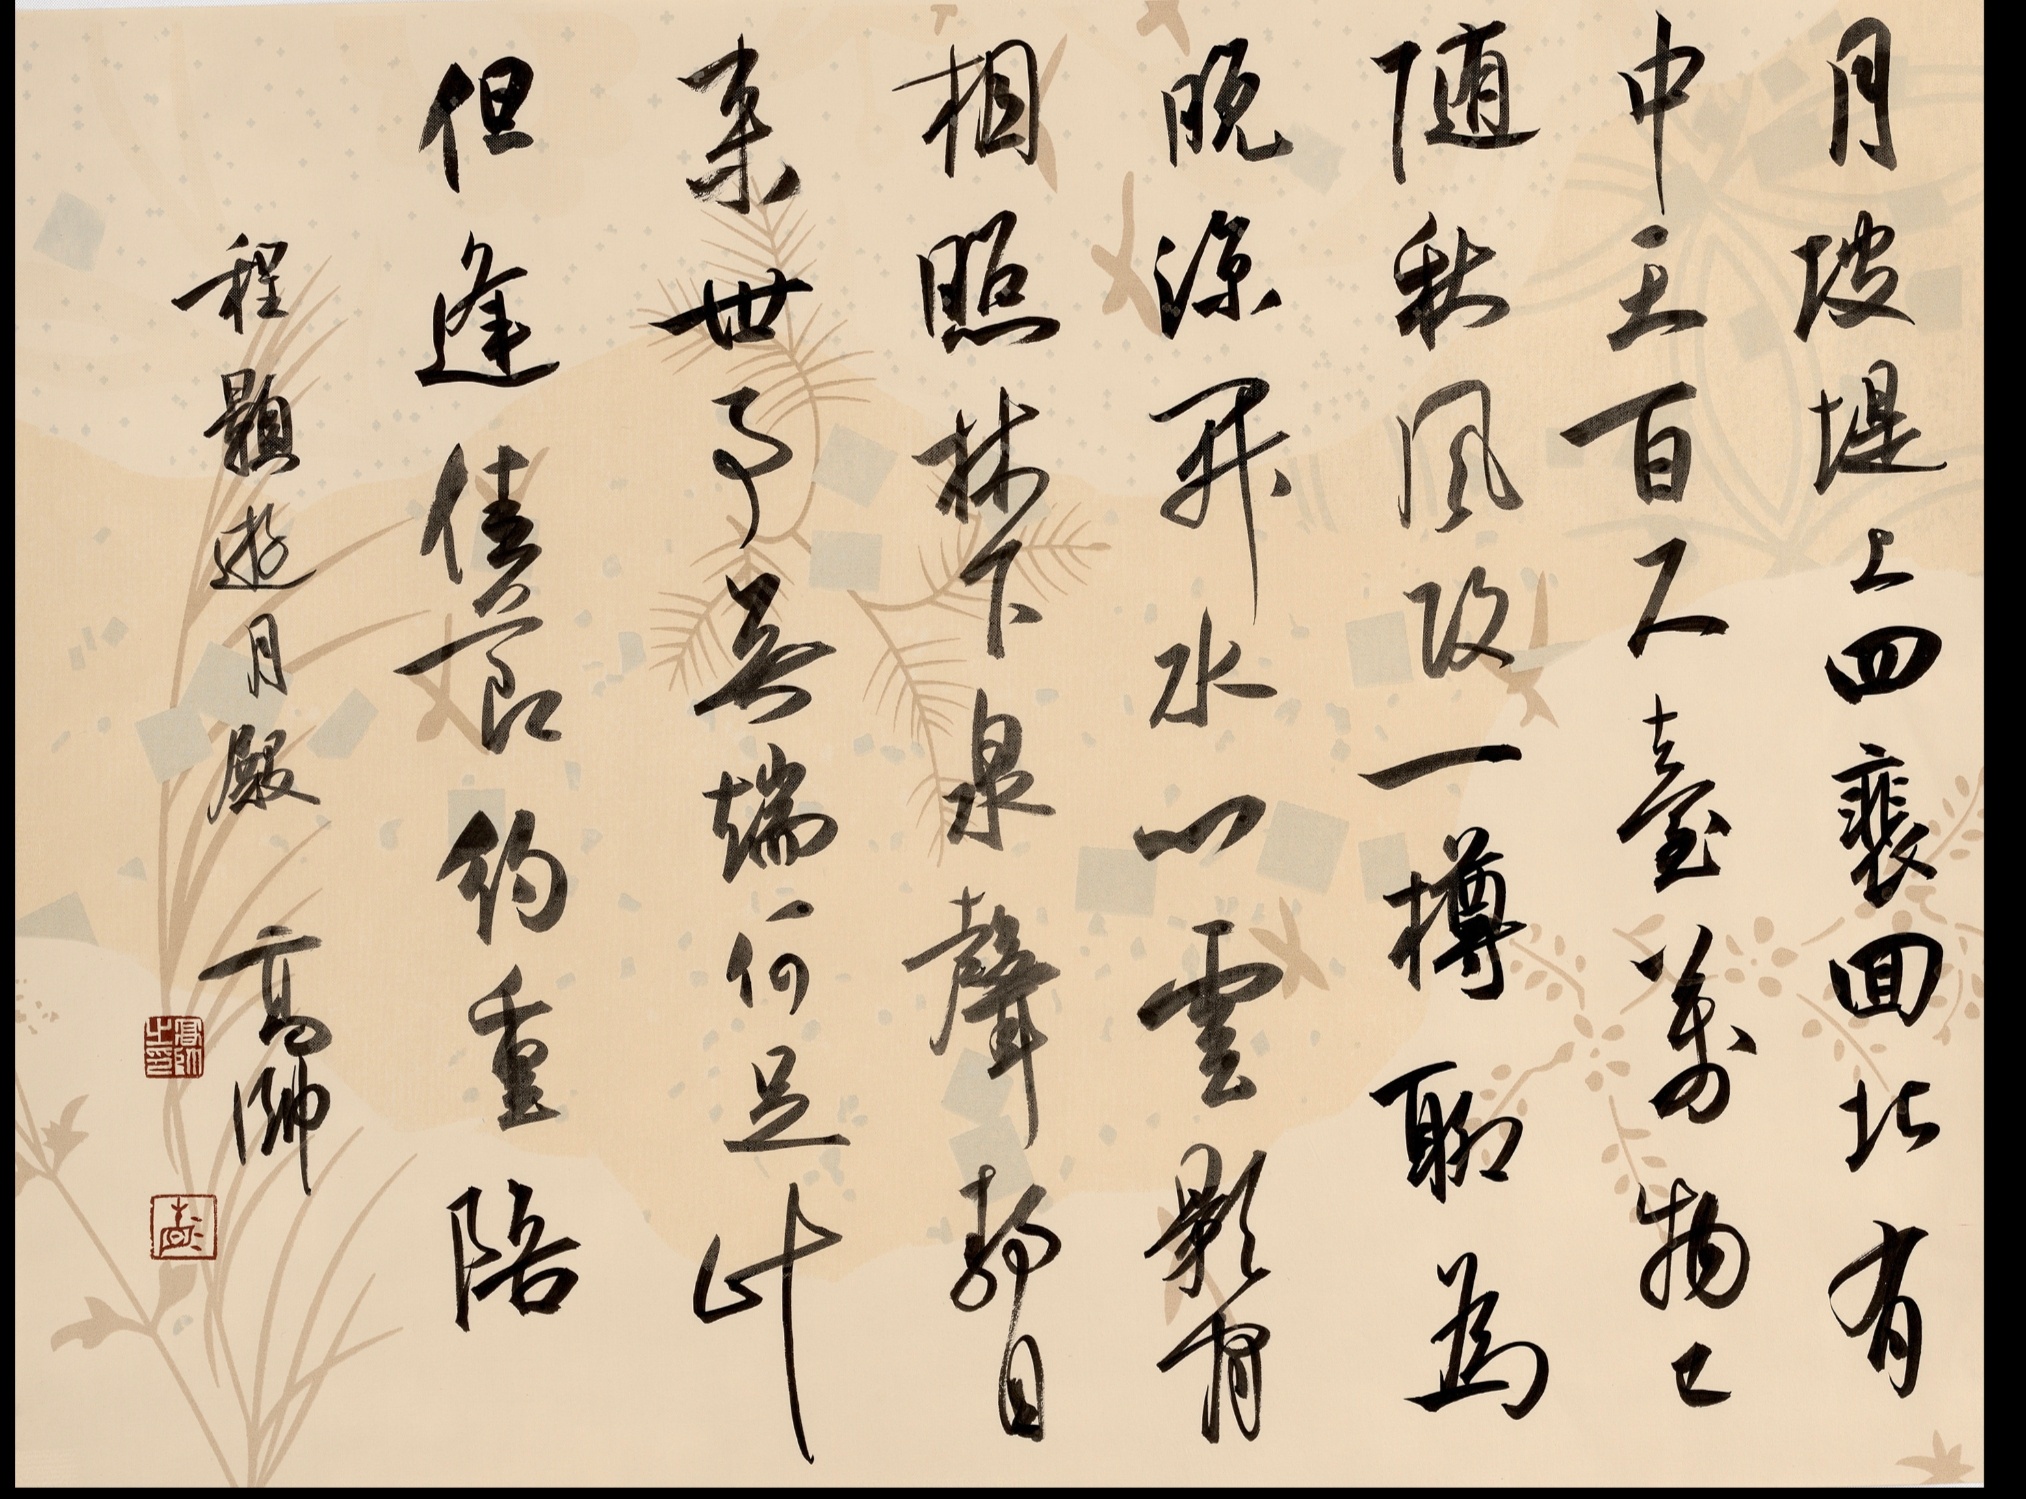 月陂堤上四裵囬北有
中天百尺臺萬物已
随秋風改一樽聊為
晚涼開水心雲影閒
相照林下泉聲靜自
來世事無端何足計
但逢佳節約重陪
程顥遊月殿 高帥
高帥之印